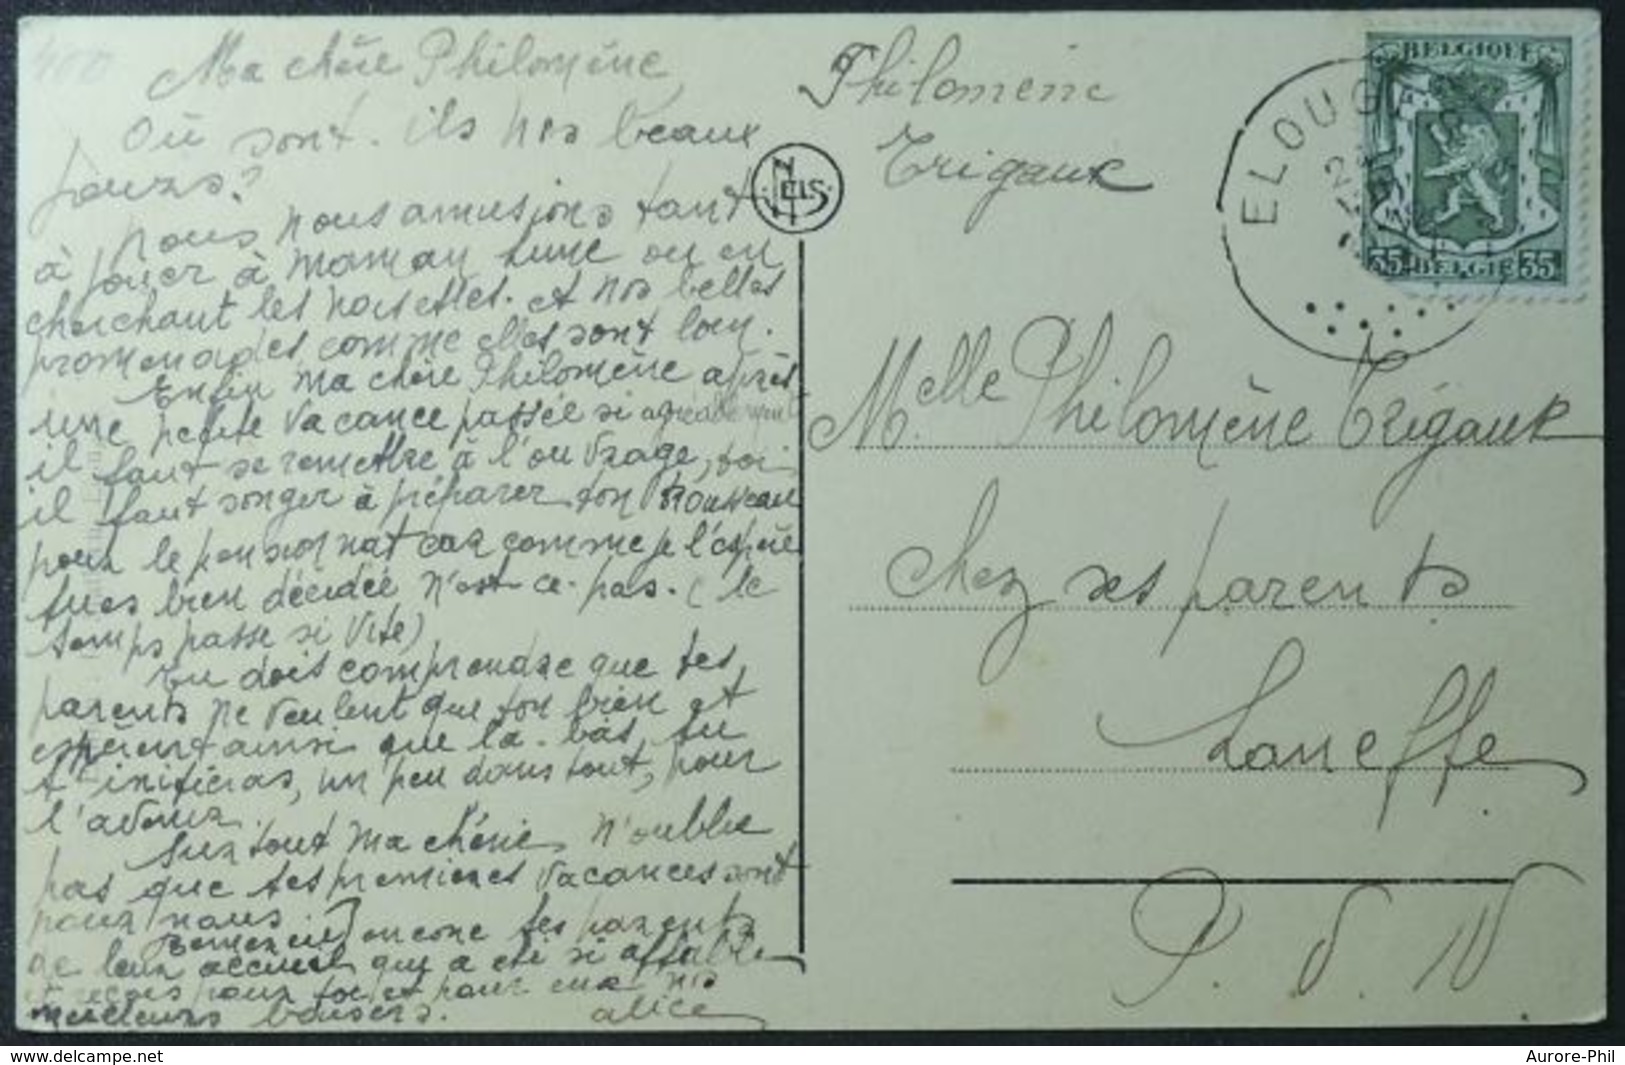 Ma chère Philomène,
Où sont-ils nos beaux
jours?
Nous nous amusions tant
à jouer à maman lune ou en
cherchant les noisettes. Et nos belles
promenades comme elles sont loin.
Enfin ma chère Philomène après
une petite vacance passée si agréablement
il faut se remettre à l'ouvrage, toi
il faut songer à préparer ton trousseau
pour le pensionnat car comme je l'espère
tu es bien décidée n'est-ce-pas. (le
temps passe si vite)
Tu dois comprendre que tes
parents ne veulent que ton bien et
espèrent ainsi que là-bas, tu
t'initieras, un peu dans tout, pour
l'avenir.
Surtout ma chérie, n'oublie
pas que tes premières vacances sont
pour nous.
Remercie encore tes parents
de leur accueil qui a été si affable
et reçois pour toi et pour eux nos
meilleurs baisers. Alice
NELS
Philomène
Trigaux
ELOUGES
BELGIQUE
35 BELGIE 35
Melle Philomène Trigaux
Chez ses parents
Laneffe
P. d. N
Delcampe.net
Aurore-Phil